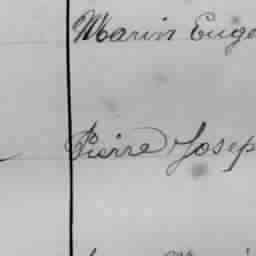 Marin Euge
Pierre Josep